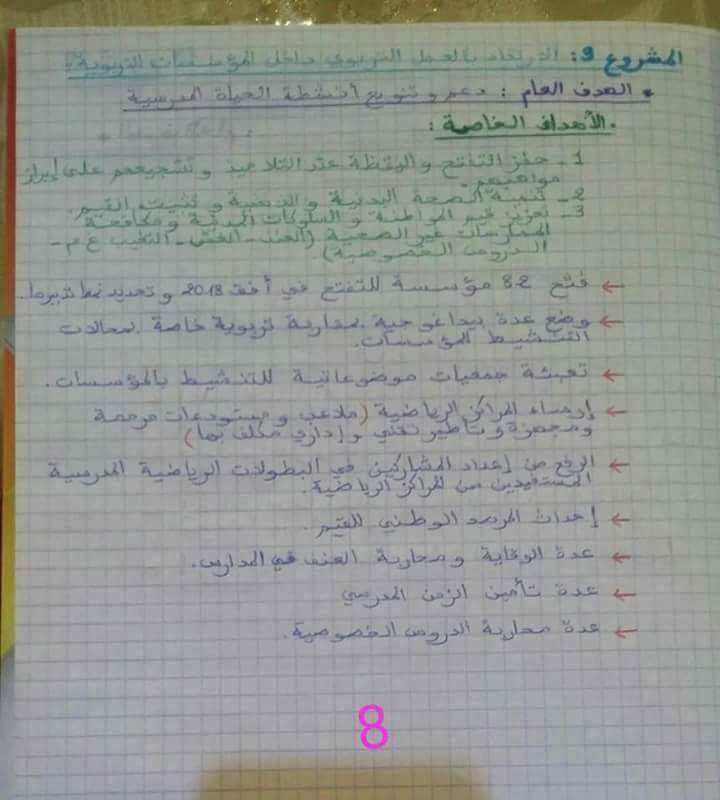 المشروع 9: الارتقاء بالعمل التربوي داخل المؤسسات التربوية.
• الهدف العام : دعم و تنويع أنشطة الحياة المدرسية
• الأهداف الخاصة :
1- حفز التفتح و اليقظة عند التلاميذ و تشجيعهم على إبراز
مواهبهم.
2- تنمية الصحة البدنية و النفسية و تثبيت القيم.
3- تعزيز قيم المواطنة و السلوكات المدنية و مكافحة
الممارسات غير الصحية (العنف - الغش - التغيب ع م -
الدروس الخصوصية)
← فتح 82 مؤسسة للتفتح في أفق 2018 و تحديد نمط تدبيرها.
← وضع عدة بيداغوجية لمقاربة تربوية خاصة بمجالات
التنشيط بالمؤسسات.
← تعبئة جمعيات موضوعاتية للتنشيط بالمؤسسات.
← إرساء المراكز الرياضية (ملاعب و مستودعات مرممة
ومجهزة و تأطير تقني و إداري مكلف بها)
← الرفع من إعداد المشاركين في البطولات الرياضية المدرسية
المستفيدين من المراكز الرياضية.
← إحداث المرصد الوطني للقيم.
← عدة الوقاية و محاربة العنف في المدارس.
← عدة تأمين الزمن المدرسي
← عدة محاربة الدروس الخصوصية.
8